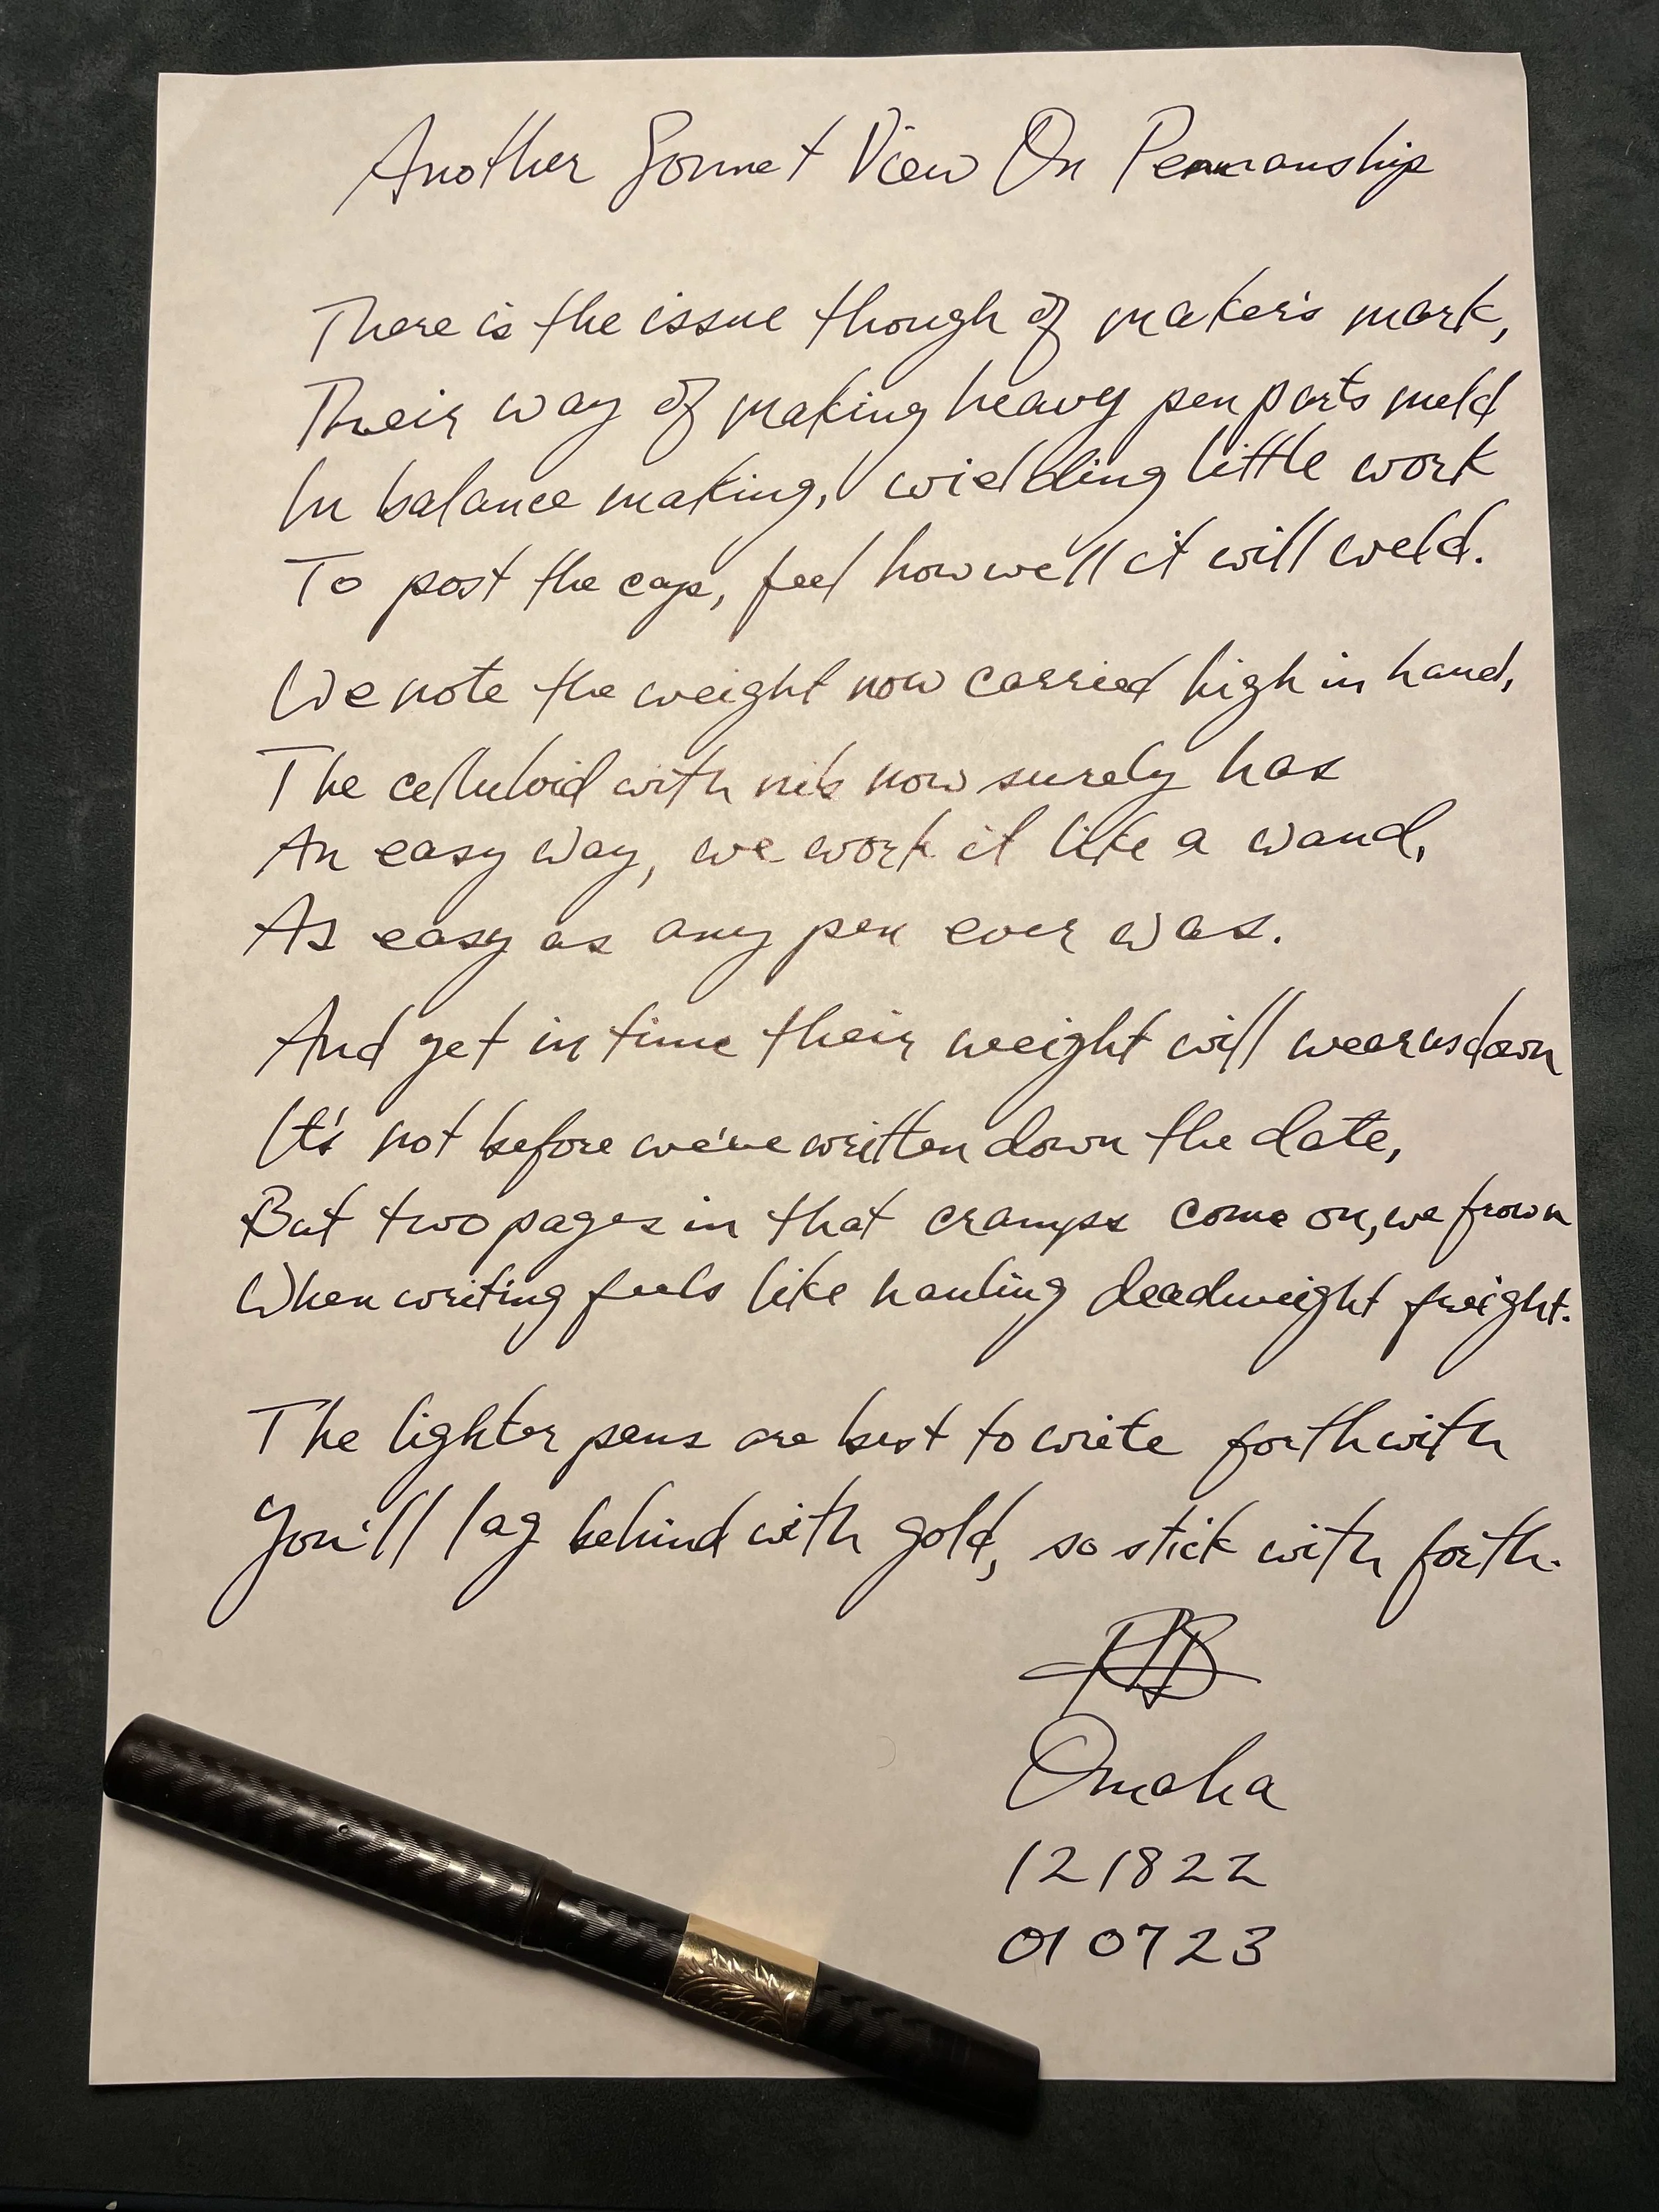 Another Sonnet View On Penmanship
There is the issue though of maker's mark,
Their way of making heavy pen parts meld
In balance making, wielding little work
To post the cap, feel how well it will weld.
We note the weight now carried high in hand,
The celluloid with nib now surely has
An easy way, we work it like a wand,
As easy as any pen ever was.
And yet in time their weight will wear us down
It's not before we've written down the date,
But two pages in that cramps come on, we frown
When writing feels like hauling deadweight freight.
The lighter pens are best to write forthwith
You'll lag behind with gold, so stick with forth.
Omaha
121822
010723